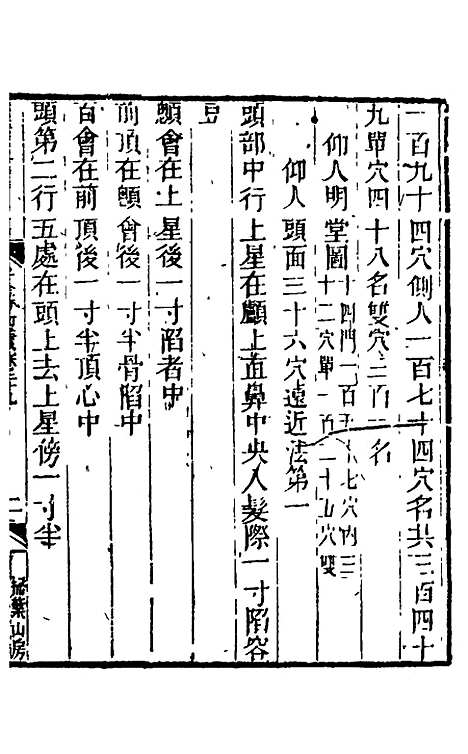 一百九十四穴側人一百七十四穴名共三百四十
九單穴四十八名雙穴三百一名
仰人明堂圖十四門一百五十七穴內三
十二穴單一百二十五穴雙
仰人頭面三十六穴遠近法第一
頭部中行上星在顱上直鼻中央入髮際一寸陷容
豆
顖會在上星後一寸陷者中
前頂在顖會後一寸半骨陷中
百會在前頂後一寸半頂心中
頭第二行五處在頭上去上星傍一寸半
二
掃葉山房